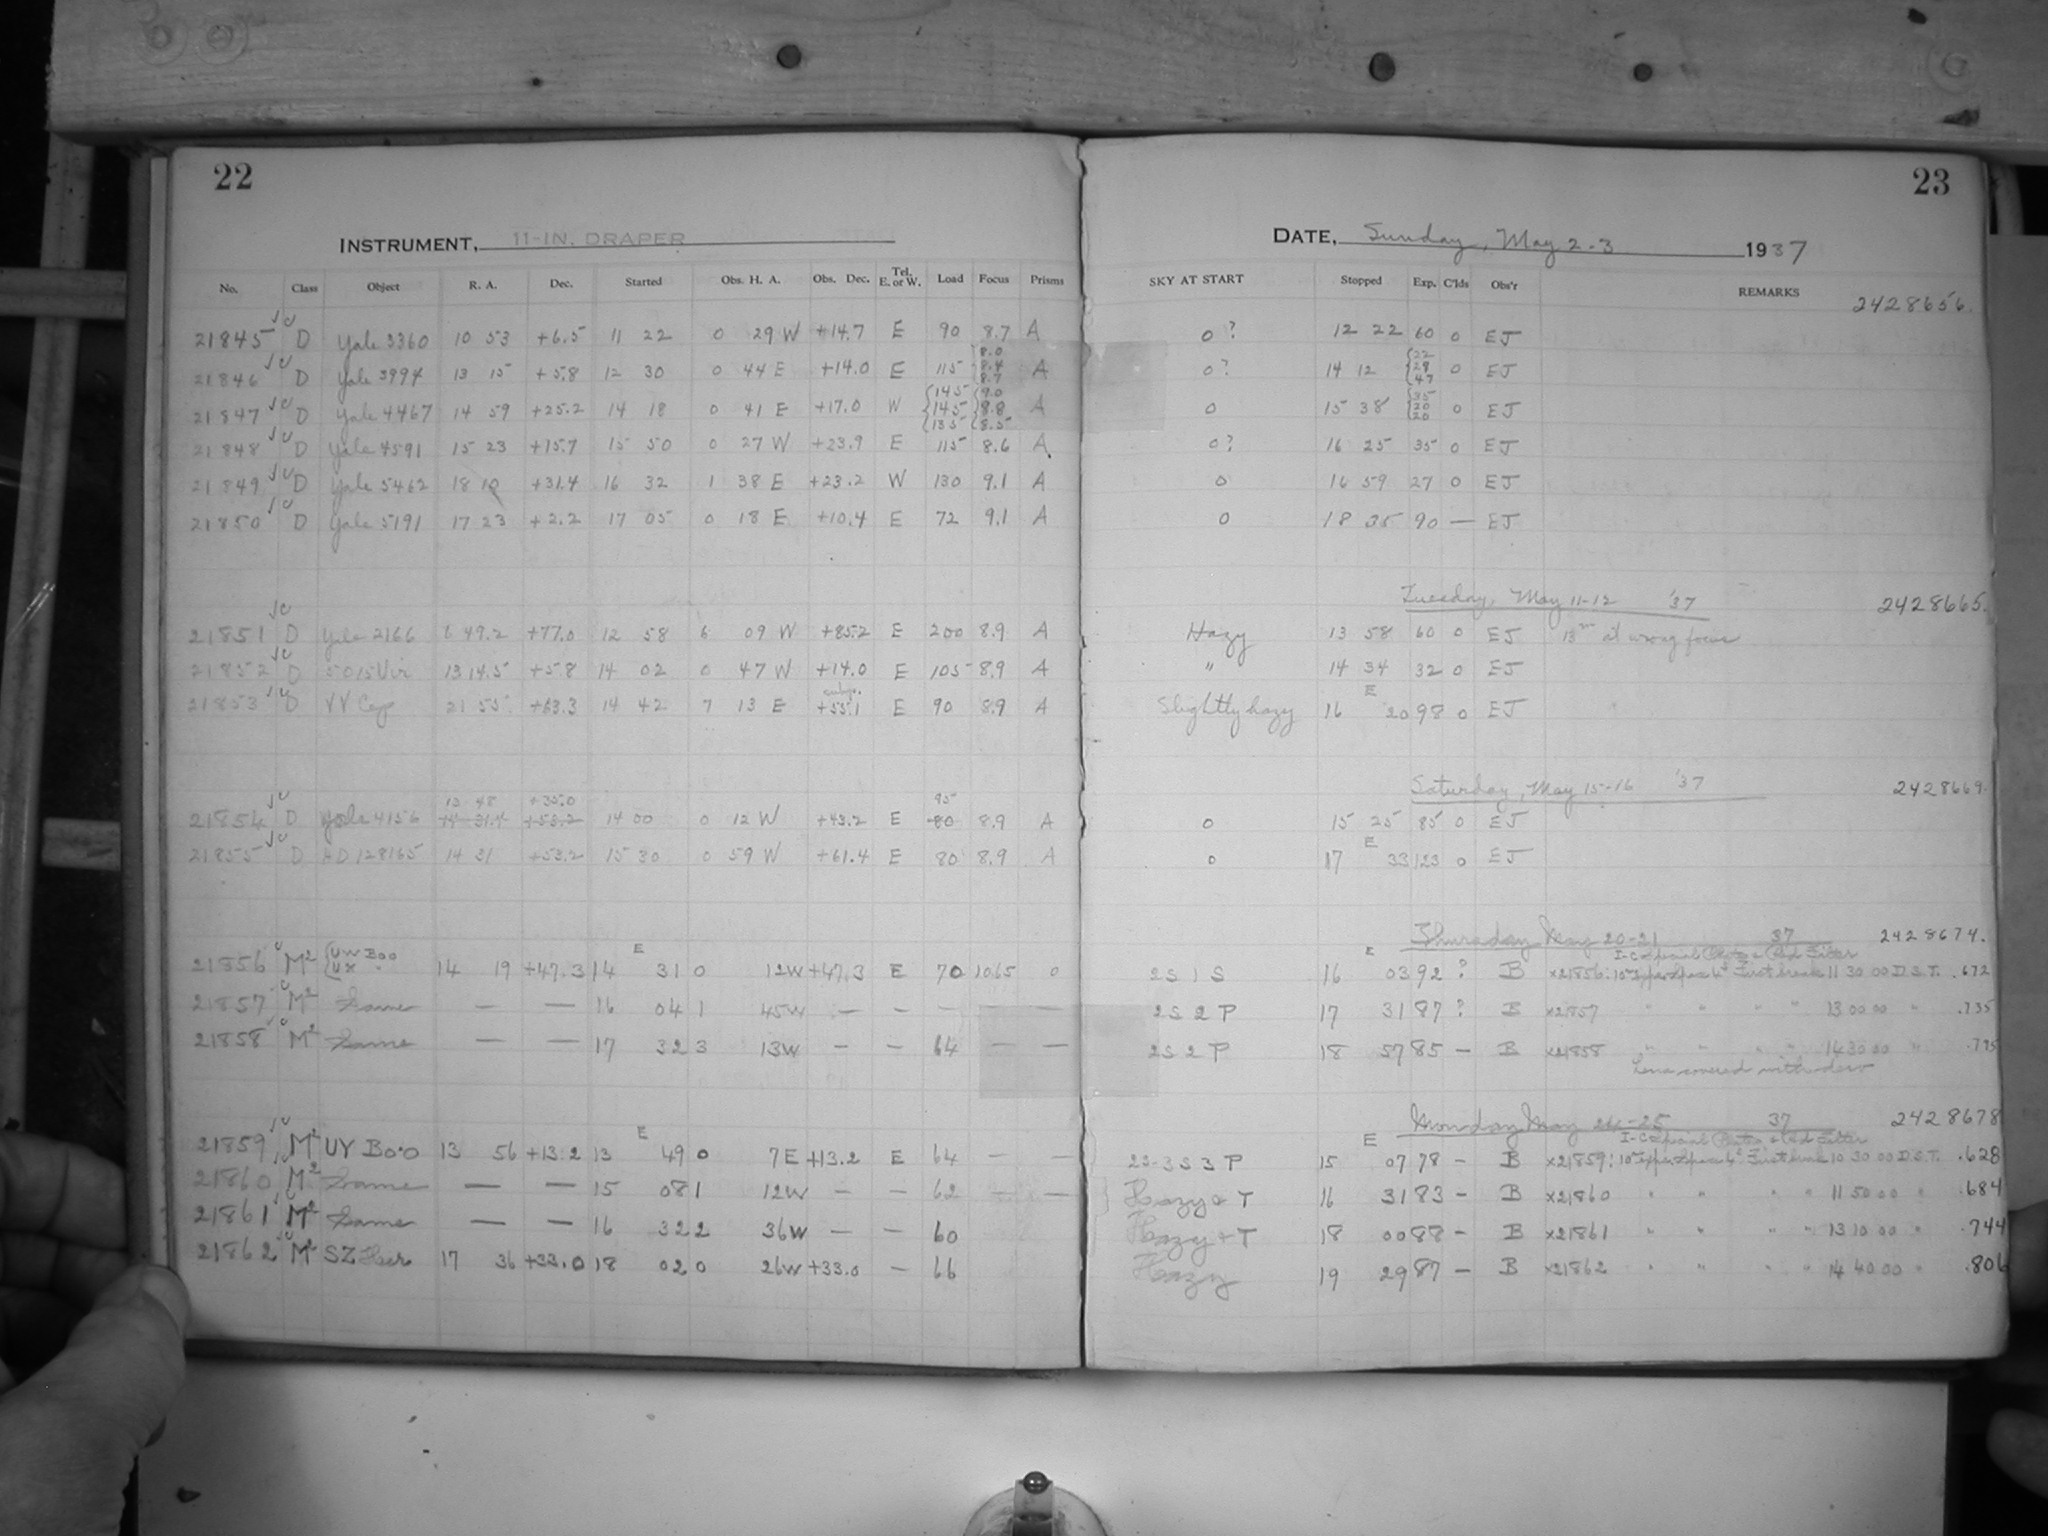 22
INSTRUMENT, 11-IN. DRAPER
No. Class Object R. A. Dec. Started Obs. H. A. Obs. Dec. Tel. E. or W. Load Focus Prisms
21845 D Yale 3360 10 53 +6.5 11 22 0 29 W +14.7 E 90 8.7 A
21846 D Yale 3994 13 15 +5.8 12 30 0 44 E +14.0 E 115 8.0 8.4 8.7 A
21847 D Yale 4467 14 59 +25.2 14 18 0 41 E +17.0 W 145 145 135 9.0 8.8 8.5 A
21848 D Yale 4591 15 23 +15.7 15 50 0 27 W +23.9 E 115 8.6 A
21849 D Yale 5462 18 10 +31.4 16 32 1 38 E +23.2 W 130 9.1 A
21850 D Yale 5191 17 23 +2.2 17 05 0 18 E +10.4 E 72 9.1 A
21851 D Yale 2166 6 49.2 +77.0 12 58 6 09 W +85.2 E 200 8.9 A
21852 D 5015 Vir 13 14.5 +5.8 14 02 0 47 W +14.0 E 105 8.9 A
21853 D VV Cep 21 55 +63.3 14 42 7 13 E +55.1 E 90 8.9 A
13 48 +35.0 95
21854 D Yale 4156 14 31.4 +53.2 14 00 0 12 W +43.2 E 80 8.9 A
21855 D HD 128165 14 31 +53.2 15 30 0 59 W +61.4 E 80 8.9 A
21856 M² {UW Boo UX " 14 19 +47.3 14 E 31 0 12W +47.3 E 70 10.65 0
21857 M² Same — — 16 04 1 45W — — — — —
21858 M² Same — — 17 32 3 13W — — 64 — —
21859 M² UY Boo 13 56 +13.2 13 E 49 0 7E +13.2 E 64 — —
21860 M² Same — — 15 08 1 12W — — 62 — —
21861 M² Same — — 16 32 2 36W — — 60
21862 M² SZ Her 17 36 +33.0 18 02 0 26W +33.0 — 66
23
DATE, Sunday, May 2-3 1937
SKY AT START Stopped Exp. C'lds Obs'r REMARKS 2428656.
0? 12 22 60 0 EJ
0? 14 12 {22 29 47 0 EJ
0 15 38 {35 20 20 0 EJ
0? 16 25 35 0 EJ
0 16 59 27 0 EJ
0 18 35 90 — EJ
Tuesday, May 11-12 '37 2428665.
Hazy 13 58 60 0 EJ 13ᵐ at wrong focus
" 14 34 32 0 EJ
Slightly hazy 16 E 20 98 0 EJ
Saturday, May 15-16 '37 2428669.
0 15 25 85 0 EJ
0 17 E 33 123 0 EJ
Thursday May 20-21 37 2428674.
I-C Special Plates & Red Filter
2S 1 S 16 E 03 92 ? B x21856: First break 11 30 00 D.S.T. .672
2S 2 P 17 31 87 ? B x21857 " " " " 13 00 00 " .735
2S 2 P 18 57 85 — B x21858 " " " " 14 30 00 " .795
Lens covered with dew
Monday May 24-25 37 2428678
I-C Special Plates & Red Filter
2S-3S 3 P 15 E 07 78 — B x21859: First break 10 30 00 D.S.T. .628
Hazy & T 16 31 83 — B x21860 " " " " 11 50 00 " .684
Hazy & T 18 00 88 — B x21861 " " " " 13 10 00 " .744
Hazy 19 29 87 — B x21862 " " " " 14 40 00 " .806